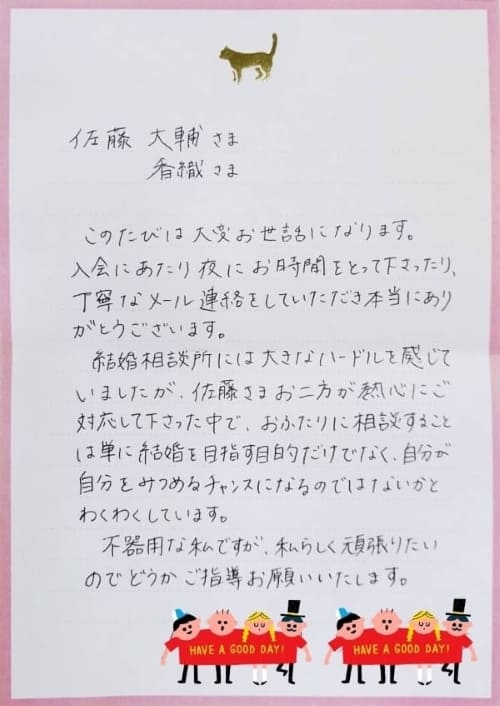 佐藤 大輔さま
香織さま
このたびは大変お世話になります。
入会にあたり夜にお時間をとって下さったり、
丁寧なメール連絡をしていただき本当にあり
がとうございます。
結婚相談所には大きなハードルを感じて
いましたが、佐藤さまお二方が熱心にご
対応して下さった中で、おふたりに相談すること
は単に結婚を目指す目的だけでなく、自分が
自分をみつめるチャンスになるのではないかと
わくわくしています。
不器用な私ですが、私らしく頑張りたい
のでどうかご指導お願いいたします。
HAVE A GOOD DAY! HAVE A GOOD DAY!